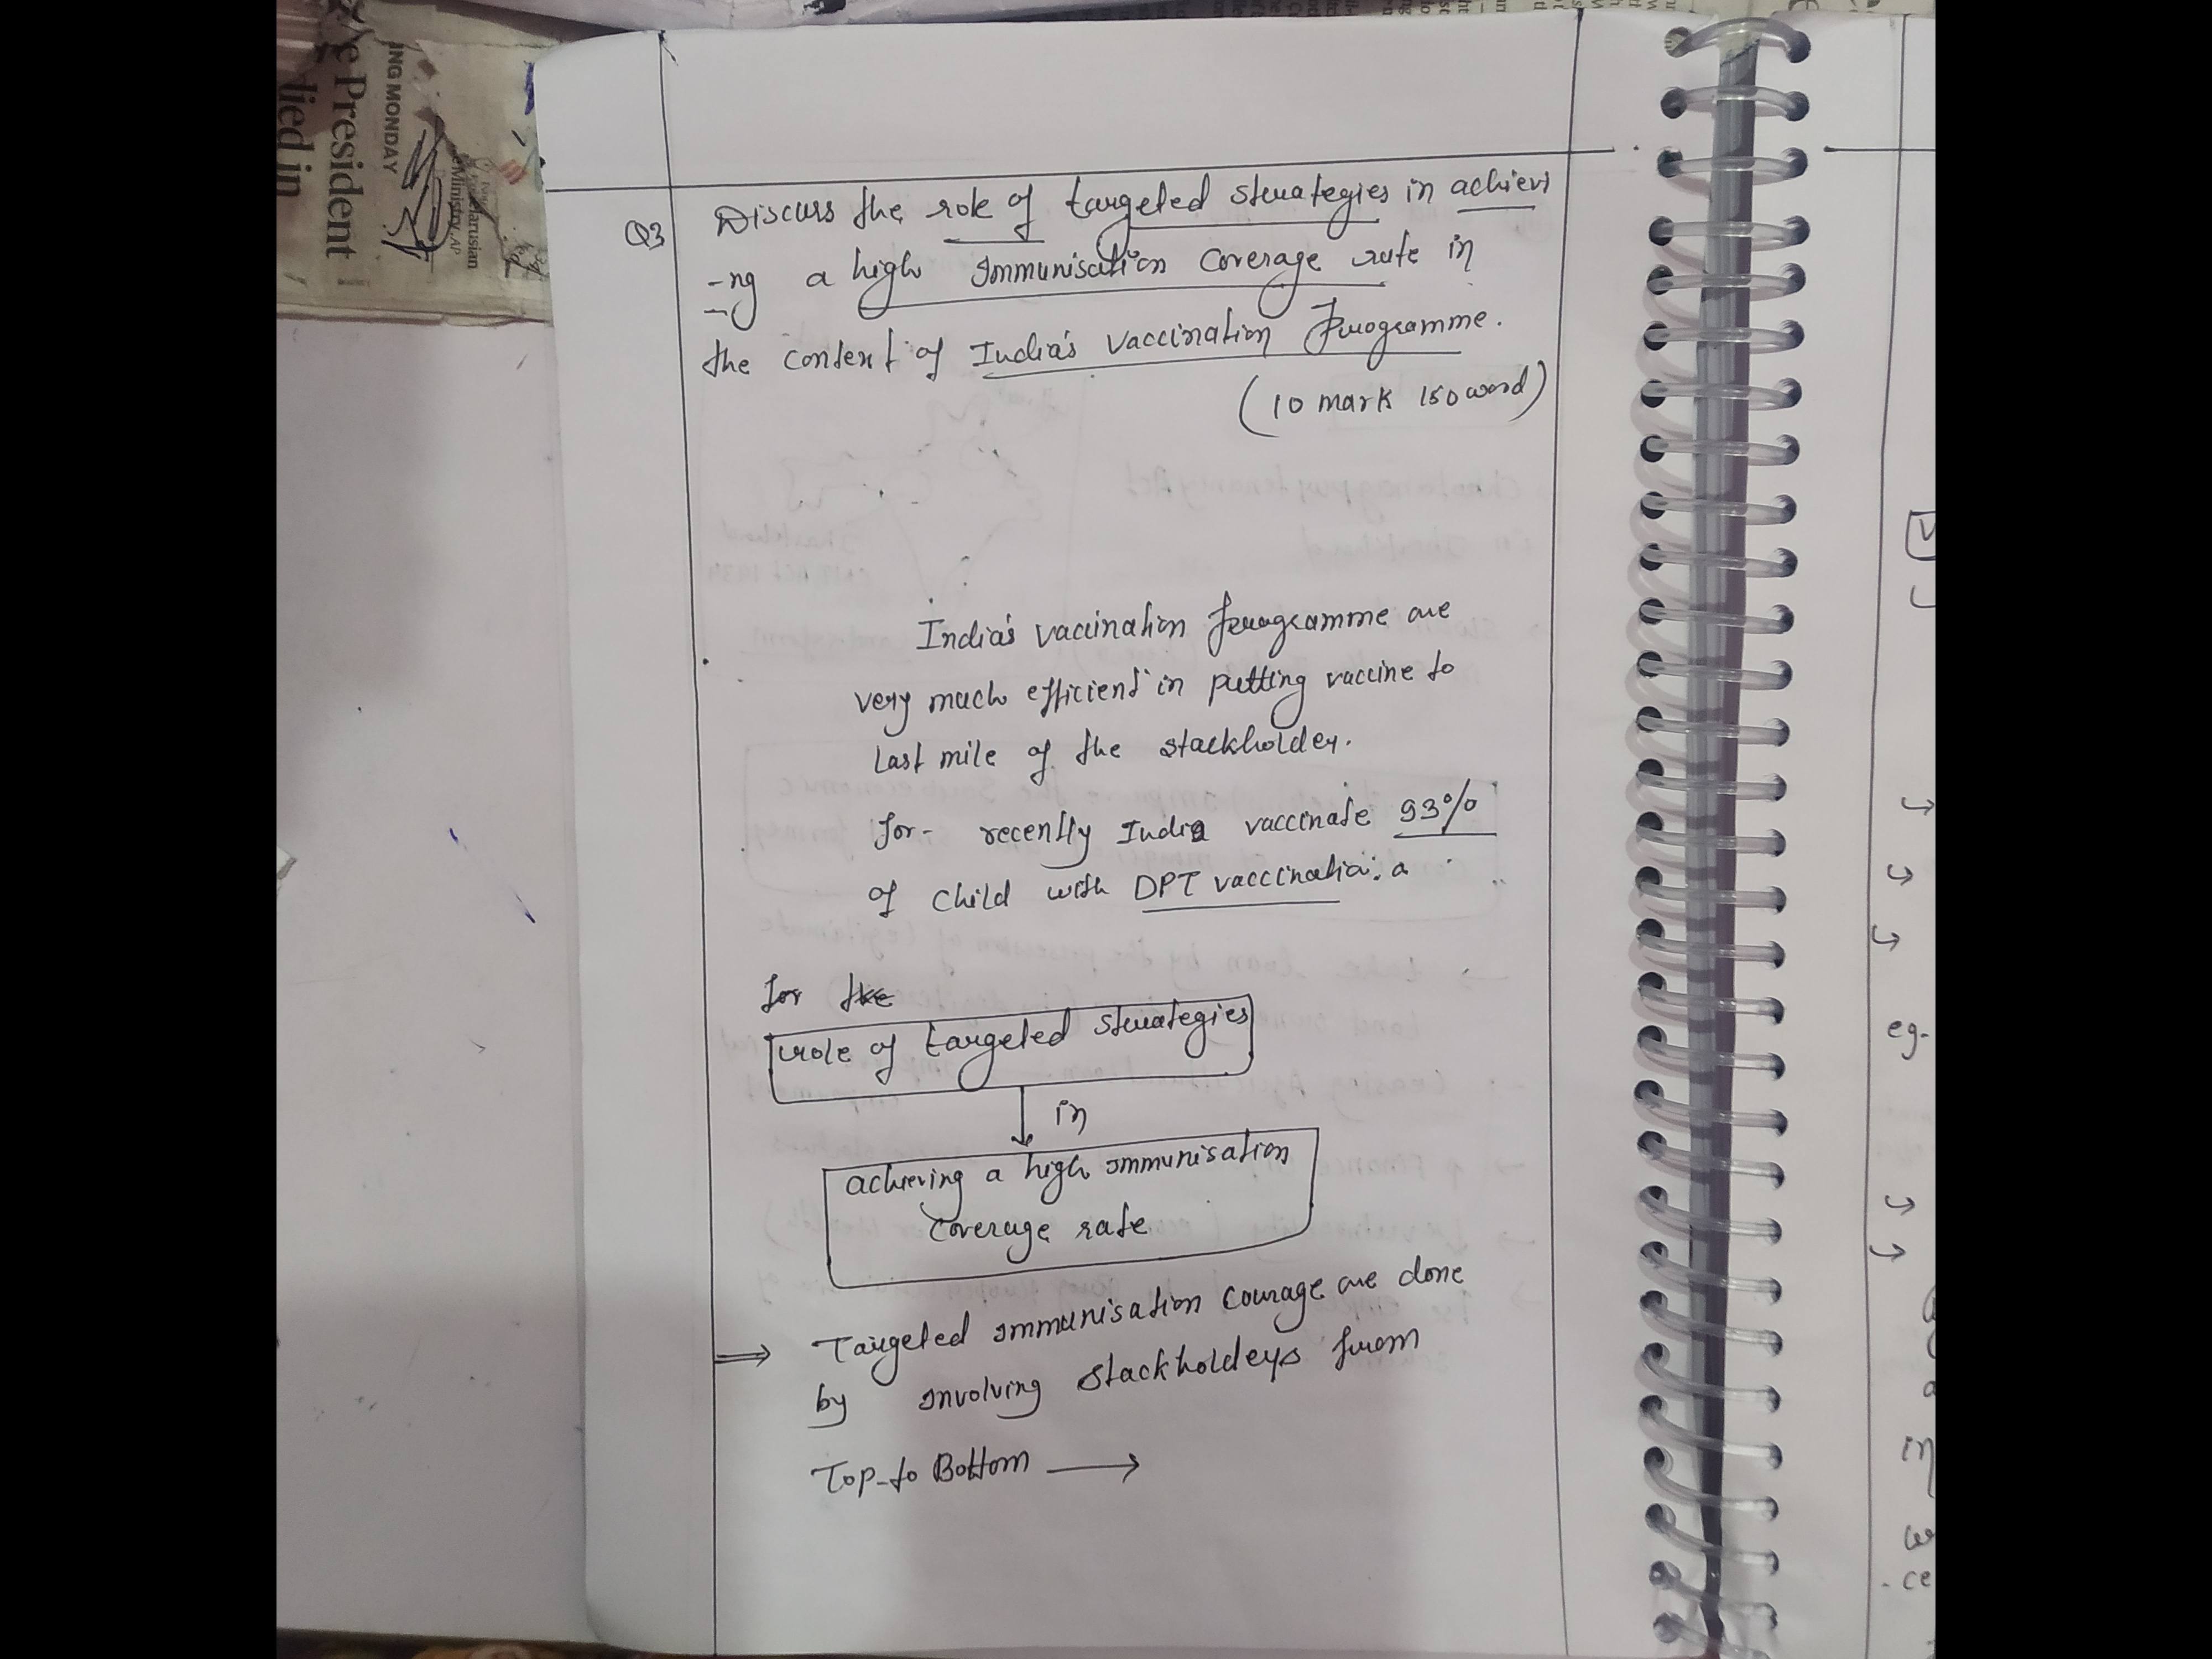 e President
lied in
ING MONDAY
larusian
Ministry. AP
Q3 Discuss the role of targeted strategies in achievi
-ng a high Immunisation Coverage rate in
the context of India's Vaccination Programme.
(10 mark 150 word)
India's vaccination programme are
very much efficient in putting vaccine to
Last mile of the stackholder.
for- recently India vaccinate 93%
of child with DPT vaccination. a
for the
role of targeted strategies
in
achieving a high Immunisation
Coverage rate
⇒ Targeted Immunisation Courage are done
by Involving stackholders from
Top-to Bottom →
eg-
in